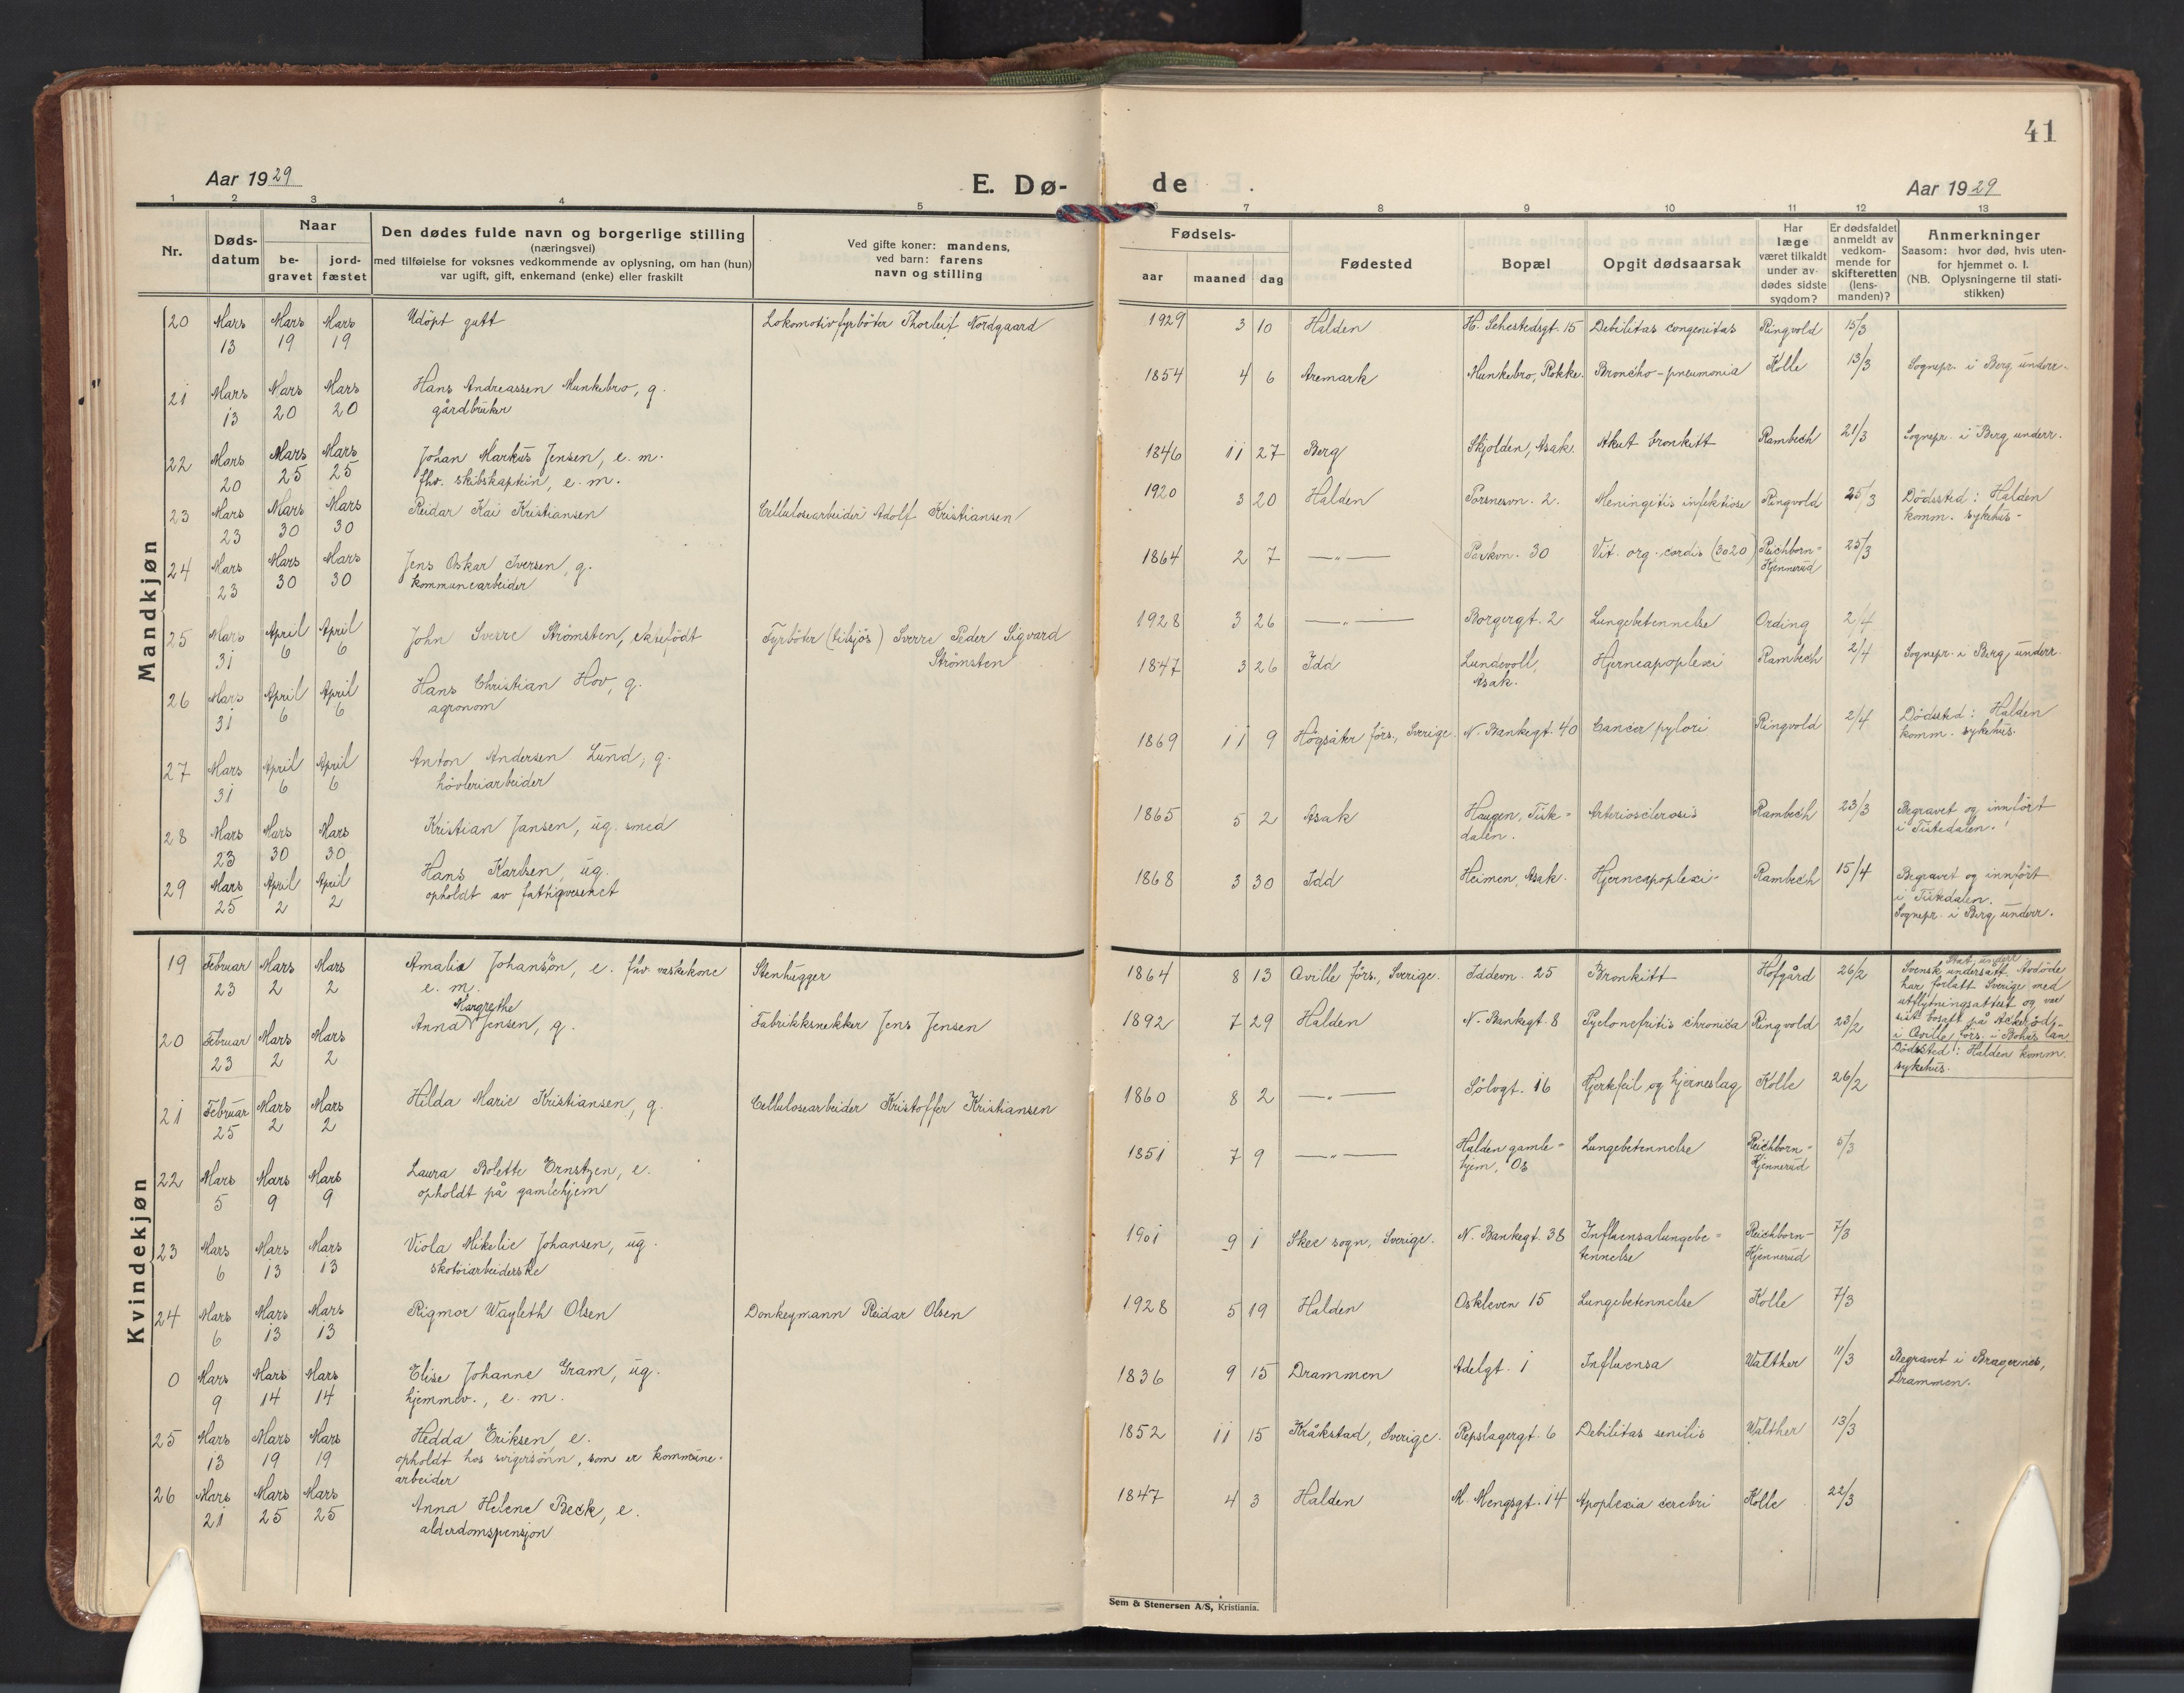 41
Aar 1929
E. Dø-
de
Aar 1929
1 2 3 4 5 6 7 8 9 10 11 12 13
Nr.
Døds-
datum
Naar
be-
gravet
jord-
fæstet
Den dødes fulde navn og borgerlige stilling
(næringsvei)
med tilføielse for voksnes vedkommende av oplysning, om han (hun)
var ugift, gift, enkemand (enke) eller fraskilt
Ved gifte koner: mandens,
ved barn: farens
navn og stilling
Fødsels-
aar
maaned
dag
Fødested
Bopæl
Opgit dødsaarsak
Har
læge
været tilkaldt
under av-
dødes sidste
sygdom?
Er dødsfaldet
anmeldt av
vedkom-
mende for
skifteretten
(lens-
manden)?
Anmerkninger
Saasom: hvor død, hvis uten-
for hjemmet o. l.
(NB. Oplysningerne til stati-
stikken)
Mandkjøn
20 Mars Mars Mars Udöpt gutt Lokomotivfyrböter Thorleif Nordgaard 1929 3 10 Halden H. Sehestedsgt. 15 Debilitas congenitas Ringvold 15/3
13 19 19
21 Mars Mars Mars Hans Andreassen Munkebro, g. 1854 4 6 Aremark Munkebro, Rokke. Broncho-pneumonia Kolle 13/3 Sognepr. i Berg underr.
13 20 20 gårdbruker
22 Mars Mars Mars Johan Markus Jensen, e. m. 1846 11 27 Berg Skjolden, Asak. Akut bronkitt Rambech 21/3 Sognepr. i Berg underr.
20 25 25 fhv. skibskaptein, e. m.
23 Mars Mars Mars Reidar Kai Kristiansen Cellulosearbeider Adolf Kristiansen 1920 3 20 Halden Torsnesvn. 2. Meningitis infektiöse Ringvold 25/3 Dödssted: Halden
23 30 30 komm. sykehus.
24 Mars Mars Mars Jens Oskar Iversen, g. 1864 2 7 —"— Parkvn. 30 Vit. org. cordis (3020) Reichborn- 25/3
23 30 30 kommunearbeider Kjennerud
25 Mars April April John Sverre Strömsten, ektefödt Fyrböter (tilsjös) Sverre Peder Sigvard 1928 3 26 —"— Borgergt. 2 Lungebetennelse Ording 2/4
31 6 6 Strömsten
26 Mars April April Hans Christian Hov, g. 1847 3 26 Idd Lundevoll, Hjerneapoplexi Rambech 2/4 Sognepr. i Berg, underr.
31 6 6 agronom Asak.
27 Mars April April Anton Andersen Lund, g. 1869 11 9 Högsäter förs., Sverige. N. Bankegt. 40 Cancer pylori Ringvold 2/4 Dödssted: Halden
31 6 6 hövleriarbeider komm. sykehus.
28 Mars Mars Mars Kristian Jansen, ug. smed 1865 5 2 Asak Haugen, Tiste- Arteriosclerosis Rambech 23/3 Begravet og innfört
23 30 30 dalen. i Tistedalen.
29 Mars April April Hans Karlsen, ug. 1868 3 30 Idd Heimen, Asak. Hjerneapoplexi. Rambech 15/4 Begravet og innfört
25 2 2 opholdt av fattigvesenet i Tistedalen.
Sognepr. i Berg, underr.
Kvindekjøn
19 Februar Mars Mars Amalia Johansön, e. fhv. vaskekone Stenhugger 1864 8 13 Qville förs., Sverige. Iddevn. 25 Bronkitt Hofgård 26/2 Svensk undersått. Avdöde
23 2 2 e. m. har forlatt Sverige med
utflytningsattest og var
sist bosatt på
i Qville förs. i Bohus län
20 Februar Mars Mars Anna Margrethe Jensen, g. Fabrikksnekker Jens Jensen 1892 7 29 Halden N. Bankegt. 8 Pyelonefritis chronica Ringvold 23/2 Dödssted: Halden komm.
23 2 2 sykehus.
21 Februar Mars Mars Hilda Marie Kristiansen, g. Cellulosearbeider Kristoffer Kristiansen 1860 8 2 —"— Sölvgt. 16 Hjertefeil og hjerneslag Kolle 26/2
25 2 2
22 Mars Mars Mars Laura Bolette Ernstzen, e. 1851 7 9 —"— Halden gamle- Lungebetennelse Reichborn- 5/3
5 9 9 opholdt på gamlehjem hjem, Os Kjennerud
23 Mars Mars Mars Viola Mikelie Johansen, ug. 1901 9 1 Skee sogn, Sverige. N. Bankegt. 38 Influensalungebe- Reichborn- 7/3
6 13 13 skotöiarbeiderske tennelse Kjennerud
24 Mars Mars Mars Rigmor Wayleth Olsen Donkeymann Reidar Olsen 1928 5 19 Halden Oskleven 15 Lungebetennelse Kolle 7/3
6 13 13
0 Mars Mars Mars Elise Johanne Gram, ug. 1836 9 15 Drammen Adelgt. 1 Influensa Walther 11/3 Begravet i Bragernes,
9 14 14 hjemmev., e. m. Drammen.
25 Mars Mars Mars Hedda Eriksen, e. 1852 11 15 Kråkstad, Sverige. Repslagergt. 6 Debilitas senilis Walther 13/3
13 19 19 opholdt hos svigersönn, som er kommune-
arbeider
26 Mars Mars Mars Anna Helene Beck, e. 1847 4 3 Halden M. Mengsgt. 14 Apoplexia cerebri Kolle 22/3
21 25 25 alderdomspensjon
Sem & Stenersen A/S, Kristiania.